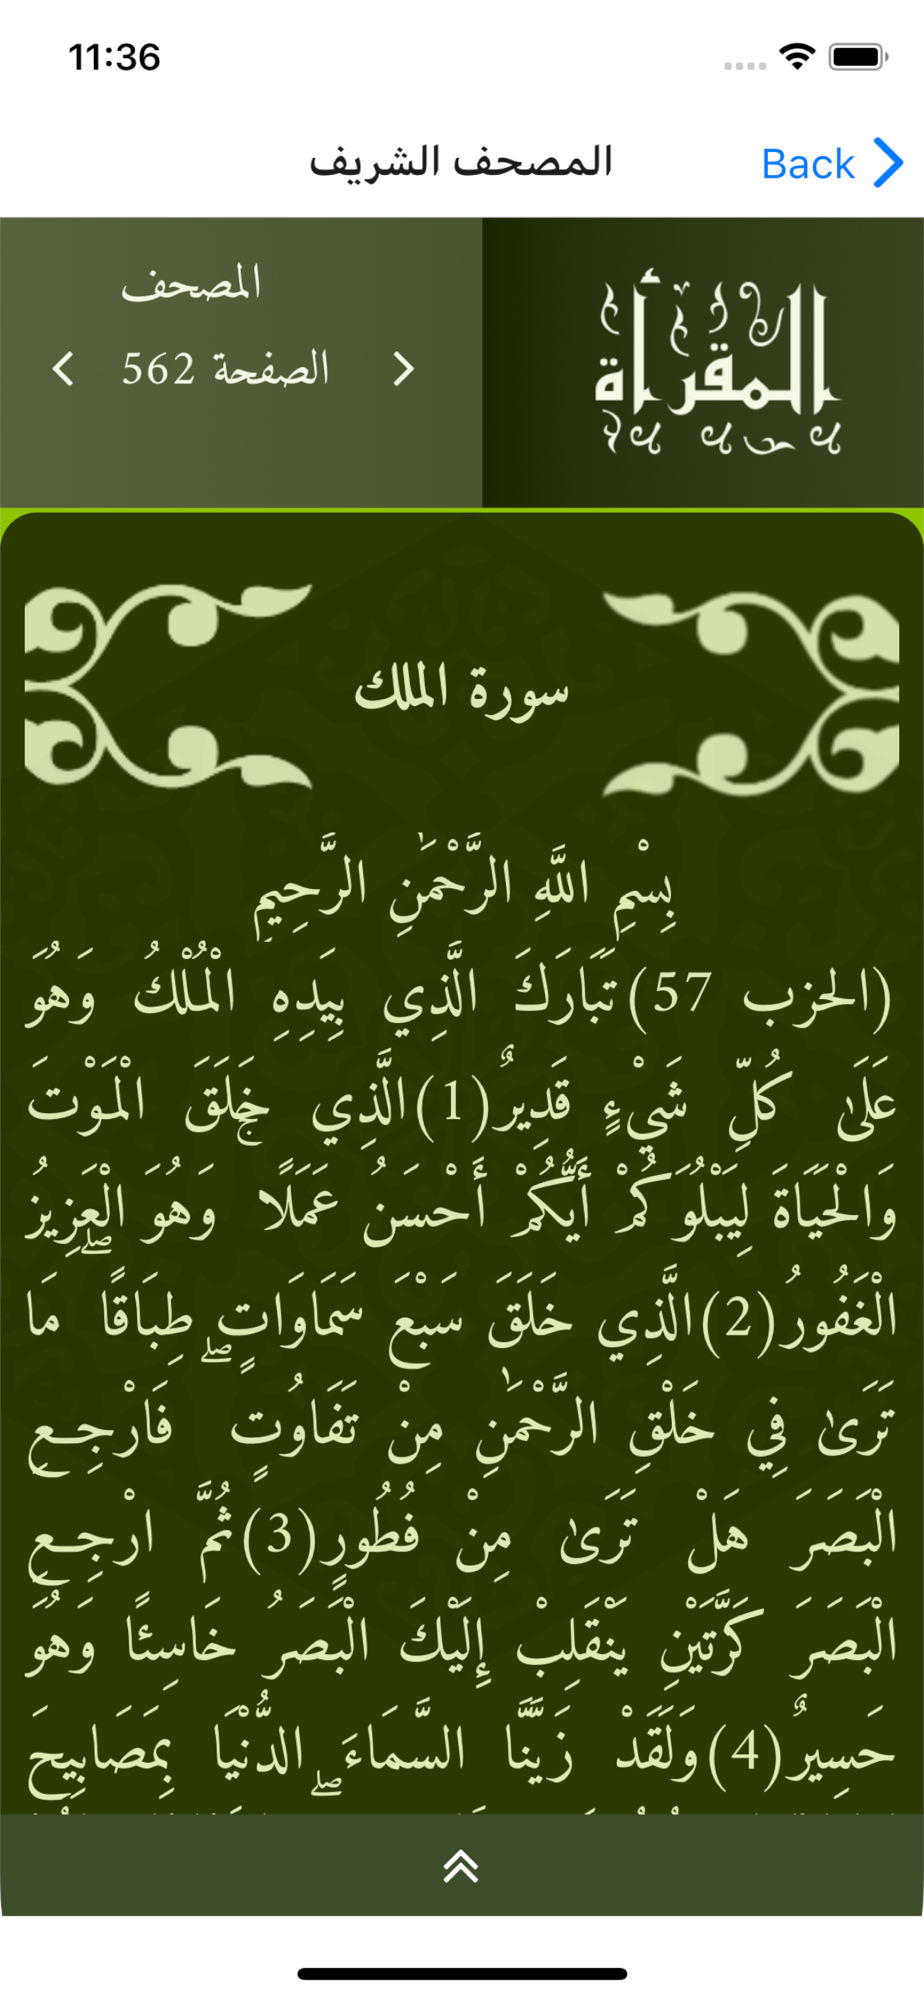 11:36
المصحف الشريف
Back
المقرأة
المصحف
الصفحة 562
سورة الملك
بِسْمِ اللَّهِ الرَّحْمَٰنِ الرَّحِيمِ
(الحزب 57)تَبَارَكَ الَّذِي بِيَدِهِ الْمُلْكُ وَهُوَ
عَلَىٰ كُلِّ شَيْءٍ قَدِيرٌ(1)الَّذِي خَلَقَ الْمَوْتَ
وَالْحَيَاةَ لِيَبْلُوَكُمْ أَيُّكُمْ أَحْسَنُ عَمَلًا ۖ وَهُوَ الْعَزِيزُ
الْغَفُورُ(2)الَّذِي خَلَقَ سَبْعَ سَمَاوَاتٍ طِبَاقًا ۖ مَا
تَرَىٰ فِي خَلْقِ الرَّحْمَٰنِ مِنْ تَفَاوُتٍ ۖ فَارْجِعِ
الْبَصَرَ هَلْ تَرَىٰ مِنْ فُطُورٍ(3)ثُمَّ ارْجِعِ
الْبَصَرَ كَرَّتَيْنِ يَنْقَلِبْ إِلَيْكَ الْبَصَرُ خَاسِئًا وَهُوَ
حَسِيرٌ(4)وَلَقَدْ زَيَّنَّا السَّمَاءَ الدُّنْيَا بِمَصَابِيحَ